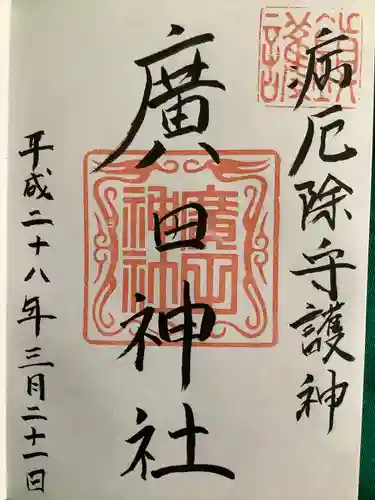 病厄除守護神
廣田神社
平成二十八年三月二十一日
廣田神社